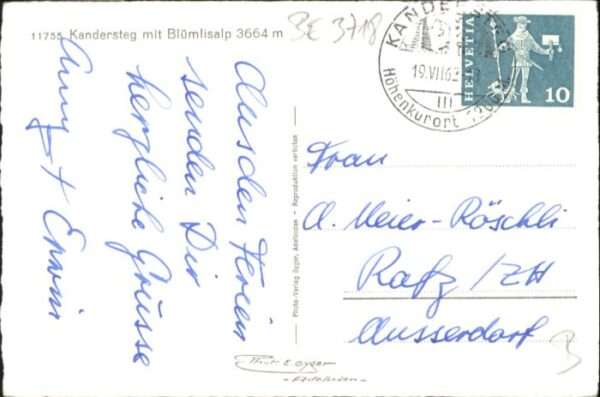 11755 Kandersteg mit Blümlisalp 3664 m
BE 3718
Aus den Ferien
senden Dir
herzliche Grüsse
Anny + Erwin
Photo-Verlag Gyger, Adelboden - Reproduktion verboten
KANDERSTEG
19.VII.63
III
Höhenkurort
HELVETIA
10
Frau
A. Meier-Röschli
Rafz / ZH
Ausserdorf
Phot. E. Gyger
- Adelboden -